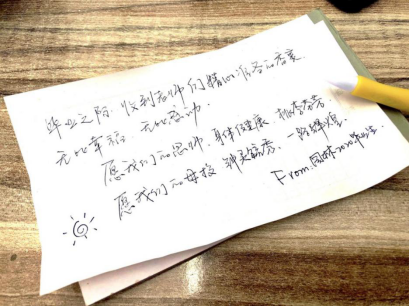 毕业之际，收到老师们精心准备的香囊
无比幸福，无比感动。
愿我们的恩师，身体健康，桃李芬芳
愿我们的母校，钟灵毓秀，一路辉煌
From.园林2020毕业生